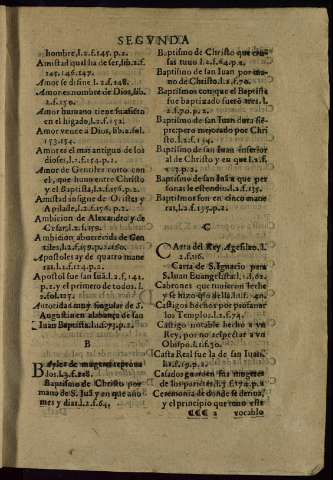 SEGVNDA
hombre, l.2.f.145. p.2.
Amistad qual ha de ser, lib.2.f.
145.146.147.
Amor se difine l.2.f.148.
Amor es nombre de Dios, lib.
2.f.150.
Amor humano tiene su
en el higado, l.2.f.152.
Amor vence a Dios, lib.2.fol.
153.154.
Amor es el mas antiguo de los
dioses, l.2.f.154.p.2.
Amor de Gentiles roto con
el, que huuo entre Christo
y el Baptista, l.2.f.156.p.2.
Amistad insigne de Orestes y
l.2.f.156.p.2.
Ambicion de Alexandro y de
Cesar, l.2.f.
Ambicion aborrecida de Gen
tiles, l.2.f.159.p.2.160.
Apostoles ay de quatro mane
ras, l.2.f.124.p.2.
Apostol fue san Iuã, l.2.f.142.
p.2. y el primero de todos. l.
2.fol.127.
Autoridad muy singular de S.
Augustin en alabança de san
Iuan Baptista. l.2.f.73.p.2.
B
Bayles de mugeres
los. l.3.f.218.
Baptismo de Christo por
mano de S. Iuã y en que año
mes y dia, l.2.f.64.
Baptismo de Christo que
sas tuuo l.2.f.64.p.2.
Baptismo de san Iuan por ma
no de Christo. l.2.f.70.
Baptismos con que el Baptista
fue baptizado fuerõ tres. l.
2.f.70.p.2.
Baptismo de san Iuan dura sie-
pre: pero mejorado por Chri
sto. l.2.f.134.
Baptismo de san Iuan inferior
al de Christo y en que, l.2.f.
p.2.
Baptismo de san Iuã a que per
sonas se estendio. l.2.f.135.
Baptismos son en cinco mane
ras, l.2.f.135.p.2.
C
Carta del Rey Agesilao, l.
2.f.116.
Carta de S. Ignacio para
S. Iuan Euangelista, l.3.f.62.
Cabrones que tuuieron leche
y se hizo queso della, l.1.f.
Castigos hechos por profanar
los Templos, l.2.f.74.
Castigo notable hecho a vn
Rey, por no respectar a vn
Obispo. l.1.f.30.
Casta Real fue la de san Iuan,
l.2.f.19.p.2.
sus mugeres
de los parientes, l.3.f.174.p.2.
Ceremonia de donde se deriua,
y el principio que tuuo este
CCC 2
vocablo